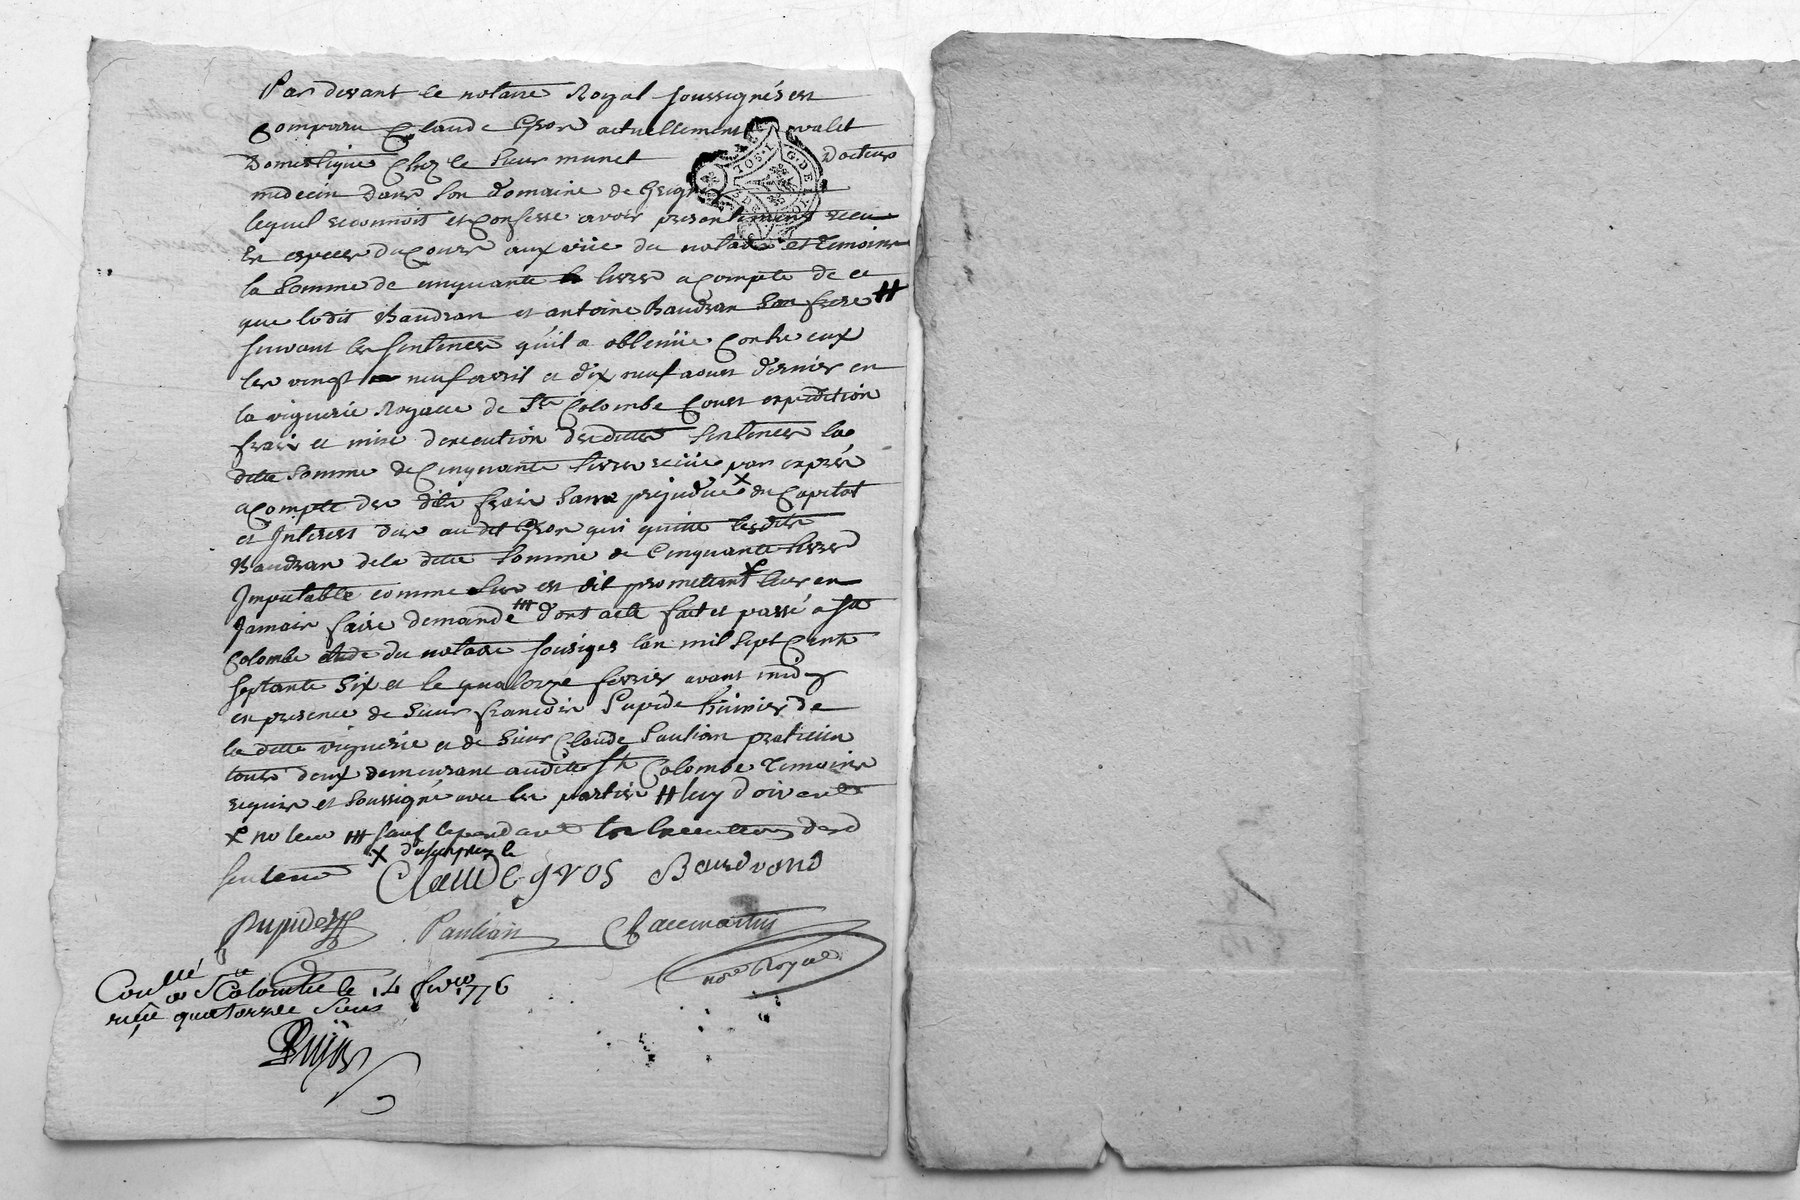 Par devant le notaire Royal soussignés est
Comparu Claude Gros actuellement valet
Domestique chez le sieur munet Docteur
medecin dans son domaine de
lequel reconnoit et confesse avoir presentement receu
en especes du Cours aux viüe du notaire et temoins
la somme de cinquante livres acompte de ce
que ledit Baudran et antoine Baudran son frere #
suivant les sentences qu'il a obtenüe contre eux
les vingt neuf avril et dix neuf aoust dernier en
la viguerie Royalle de Ste Colombe Coust expedition
frais et mise dexecution desdittes sentences la
ditte somme de Cinquante livres reçüe par exprès
acompte des dits frais sans prejudice x du Capital
et Interest dus audit Gros qui quitte lesdits
Baudran de la ditte somme de Cinquante livres
Imputable comme sus est dit promettant x leur en
Jamais faire demande ### dont acte fait et passé a Ste
Colombe etude du notaire sousigné lan mil sept cent
septante six et le quatorze fevrier avant midy
en presence de sieur françois Pupide huissier de
la ditte viguerie et de sieur Claude Paulian praticien
tous deux demeurant audit Ste Colombe temoins
requis et soussigné avec les parties # luy doivent
x ne leur ### sauf cependant les executions desd
sentence x
Claude gros Baudrand
Pupide Paulian
nore Royal
Conllé a Ste Colombe le 14 fevrier 1776
reçüe quatorze sous